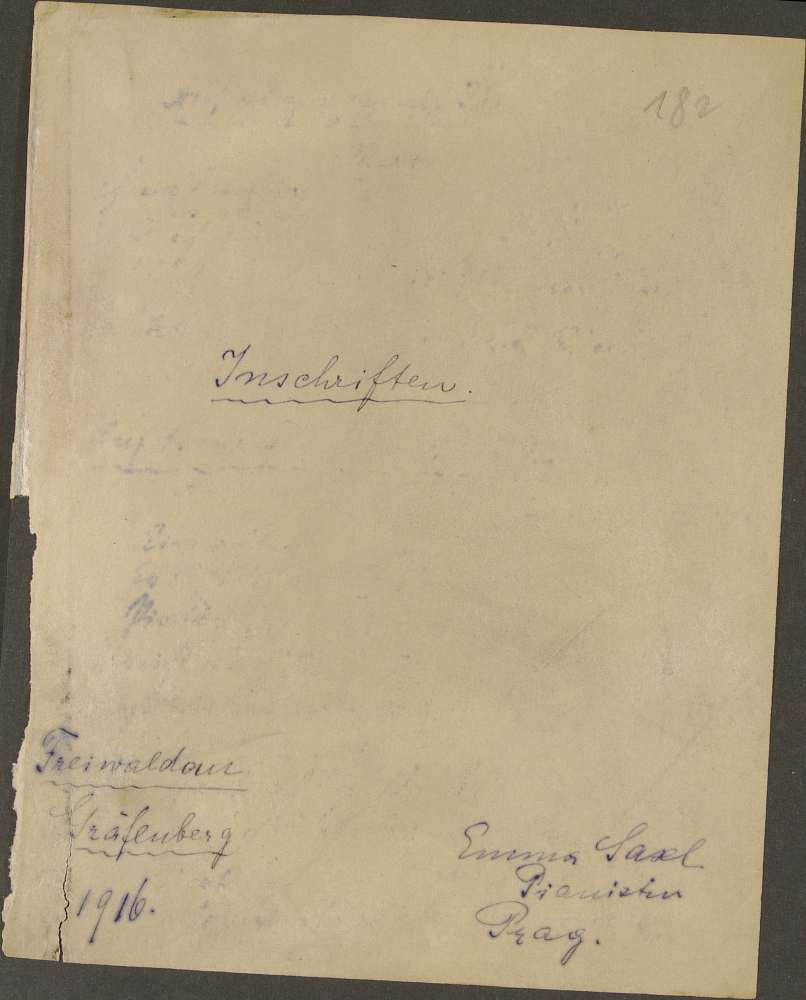 182
Inschriften.
Freiwaldau
Gräfenberg
1916.
Emma Saxl
Pianistin
Prag.